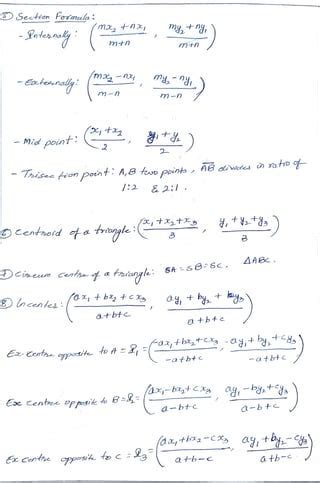 ⑤ Section Formula:
- Internally: ((mx₂ + nx₁)/(m+n) , (my₂ + ny₁)/(m+n))
- Externally: ((mx₂ - nx₁)/(m-n) , (my₂ - ny₁)/(m-n))
- Mid point: ((x₁+x₂)/2 , (y₁+y₂)/2)
- Trisection point: A,B two points, A̅B̅ divides in ratio of
1:2 & 2:1.
⑥ Centroid of a triangle: ((x₁+x₂+x₃)/3 , (y₁+y₂+y₃)/3)
⑦ Circum centre of a triangle: SA = SB = SC. ΔABC.
⑧ Incenter: ((ax₁ + bx₂ + cx₃)/(a+b+c) , (ay₁ + by₂ + cy₃)/(a+b+c))
Ex-centre opposite to A = I₁ = ((-ax₁+bx₂+cx₃)/(-a+b+c) , (-ay₁+by₂+cy₃)/(-a+b+c))
Ex centre opposite to B = I₂ = ((ax₁-bx₂+cx₃)/(a-b+c) , (ay₁-by₂+cy₃)/(a-b+c))
Ex centre opposite to C = I₃ = ((ax₁+bx₂-cx₃)/(a+b-c) , (ay₁+by₂-cy₃)/(a+b-c))